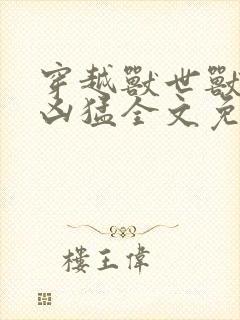 穿越獸世獸
凶猛全文免
樓王偉